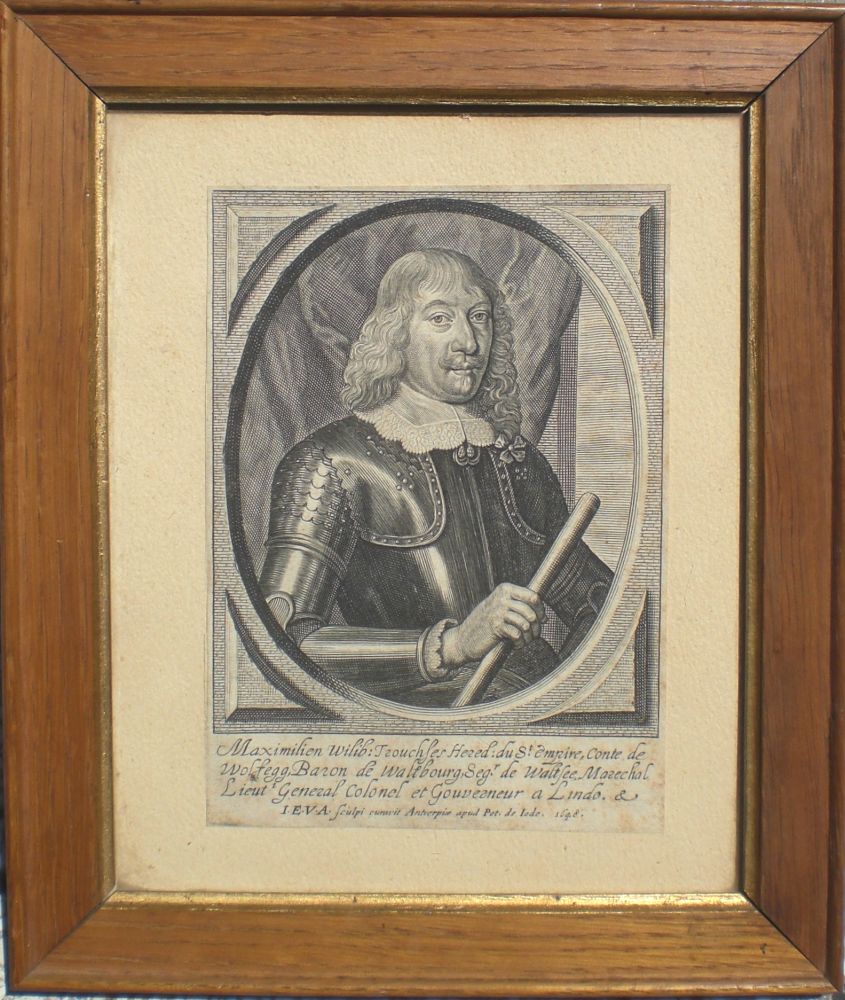 Maximilien Wilib: Trouchses Hered: du S.t Empire, Conte de
Wolfegg, Baron de Waltbourg, Seg.r de Waltsee, Marechal
Lieut.t General Colonel et Gouverneur a Lindo. &
I.E.V.A. sculpi curavit Antverpiæ apud Pet. de Iode. 1648.